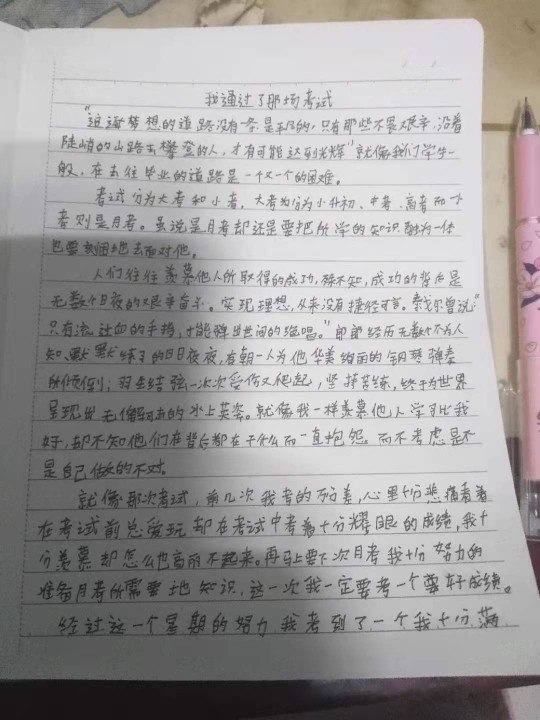 我通过了那场考试
"追逐梦想的道路没有一条是平坦的,只有那些不畏艰辛,沿着
陡峭的山路去攀登的人,才有可能达到光辉"就像我们学生一
般,在去往毕业的道路是一个又一个的困难。
考试分为大考和小考,大考为分为小升初、中考、高考而小
考则是月考。虽说是月考却还是要把所学的知识融为一体
也要刻苦地去面对他。
人们往往羡慕他人所取得的成功,殊不知,成功的背后是
无数个日夜的艰辛奋斗。实现理想,从来没有捷径可言。泰戈尔曾说:"
只有流过血的手指,才能弹出世间的绝唱。"郎朗经历无数个不为人
知、默默练习的日日夜夜,有朝一人为他华美绚丽的钢琴弹奏
所倾倒;羽生结弦一次次受伤又爬起,坚持苦练,终于为世界
呈现出无懈可击的冰上英姿。就像我一样羡慕他人学习比我
好,却不知他们在背后都在干什么而一直抱怨而不考虑是不
是自己做的不对。
就像那次考试,前几次我考的,心里十分悲痛看着
在考试前总爱玩却在考试中考着十分耀眼的成绩,我十
分羡慕却怎么也高兴不起来。再马上要下次月考我十分努力的
准备月考所需要地知识,这一次我一定要考一个要好成绩。
经过这一个星期的努力我考到了一个我十分满